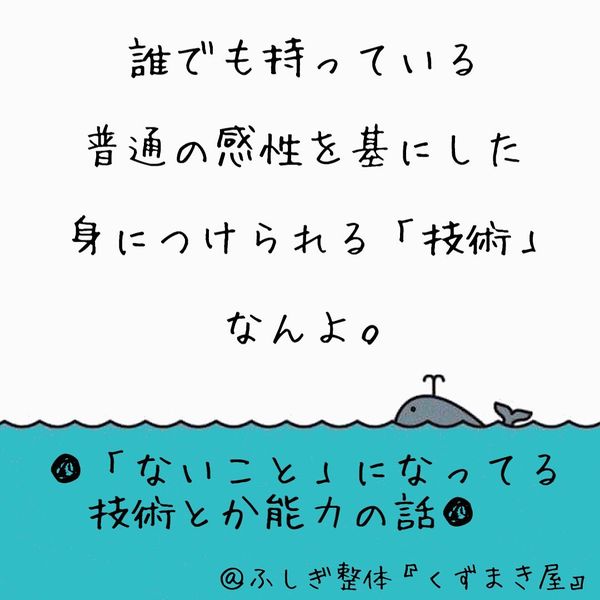 誰でも持っている
普通の感性を基にした
身につけられる「技術」
なんよ。
●「ないこと」になってる
技術とか能力の話●
@ふしぎ整体『くずまき屋』